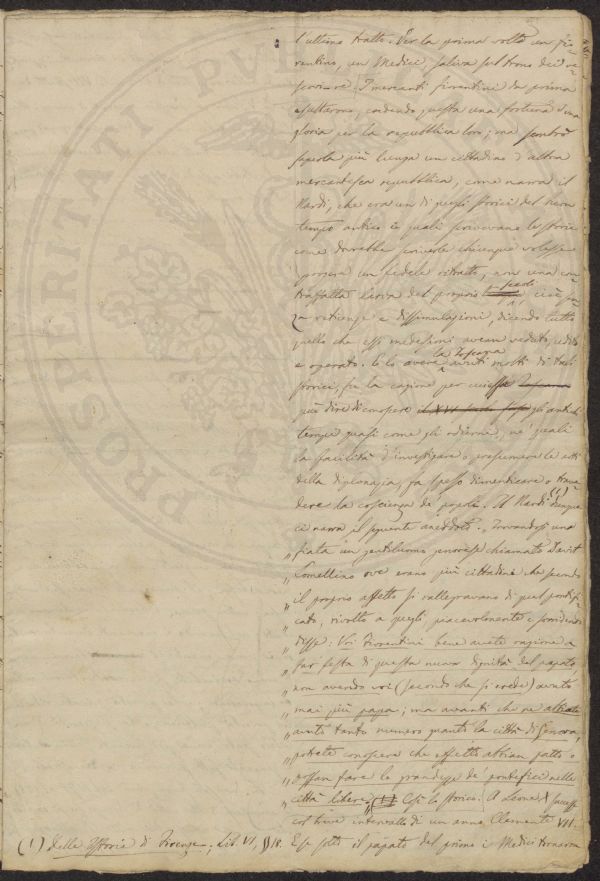 l'ultimo tratto. Per la prima volta un fio-
rentino, un Medici saliva sul trono dei ve-
scovi-re. I mercanti fiorentini da prima
esultarono, credendo questa una fortuna e una
gloria per la repubblica loro; ma sembrò
saperla più lunga un cittadino d'altra
mercantesca repubblica, come narra il
Nardi, che era un di quegli storici del buon
tempo antico i quali scrivevano le storie
come dovrebbe scriverle chiunque volesse
porgere un fedele ritratto, non una con-
traffatta larva del proprio secolo, cioè sen-
za reticenze e dissimulazioni, dicendo tutto
quello che essi medesimi avean veduto, udito
e operato. E lo avere la Toscana avuti molti di tali
storici, fu la cagione per cui essa
può dire di conoscere gli antichi
tempi quasi come gli odierni, ne' quali
la facilità d'investigare o presumere le arti
della diplomazia, fa spesso dimenticare o
la coscienza de' popoli. Il Nardi (1) dunque
ci narra il seguente aneddoto. „ Trovandosi una
„ fiata un gentiluomo genovese chiamato Davit
„ Lomellino ove erano più cittadini che secondo
„ il proprio affetto si rallegravano di quel pontifi-
„ cato, rivolto a quegli piacevolmente e sorridendo
„ disse: Voi Fiorentini bene avete ragione a
„ far festa di questa nuova dignità del papato,
„ non avendo voi (secondo che si crede) avuto
„ mai più papa; ma avanti che ne abbiate
„ avuto tanto numero quanto la città di Genova,
„ potrete conoscere che effetto abbian fatto o
„ possan fare le grandezze de' pontefici nelle
„ città libere „ (1) Così lo storico. A Leone X successe
col breve intervallo di un anno Clemente VII.
E se sotto il papato del primo i Medici tornarono
(1) Delle Istorie di Firenze, Lib. VI, § 18.
PROSPERITATI PVBLICAE